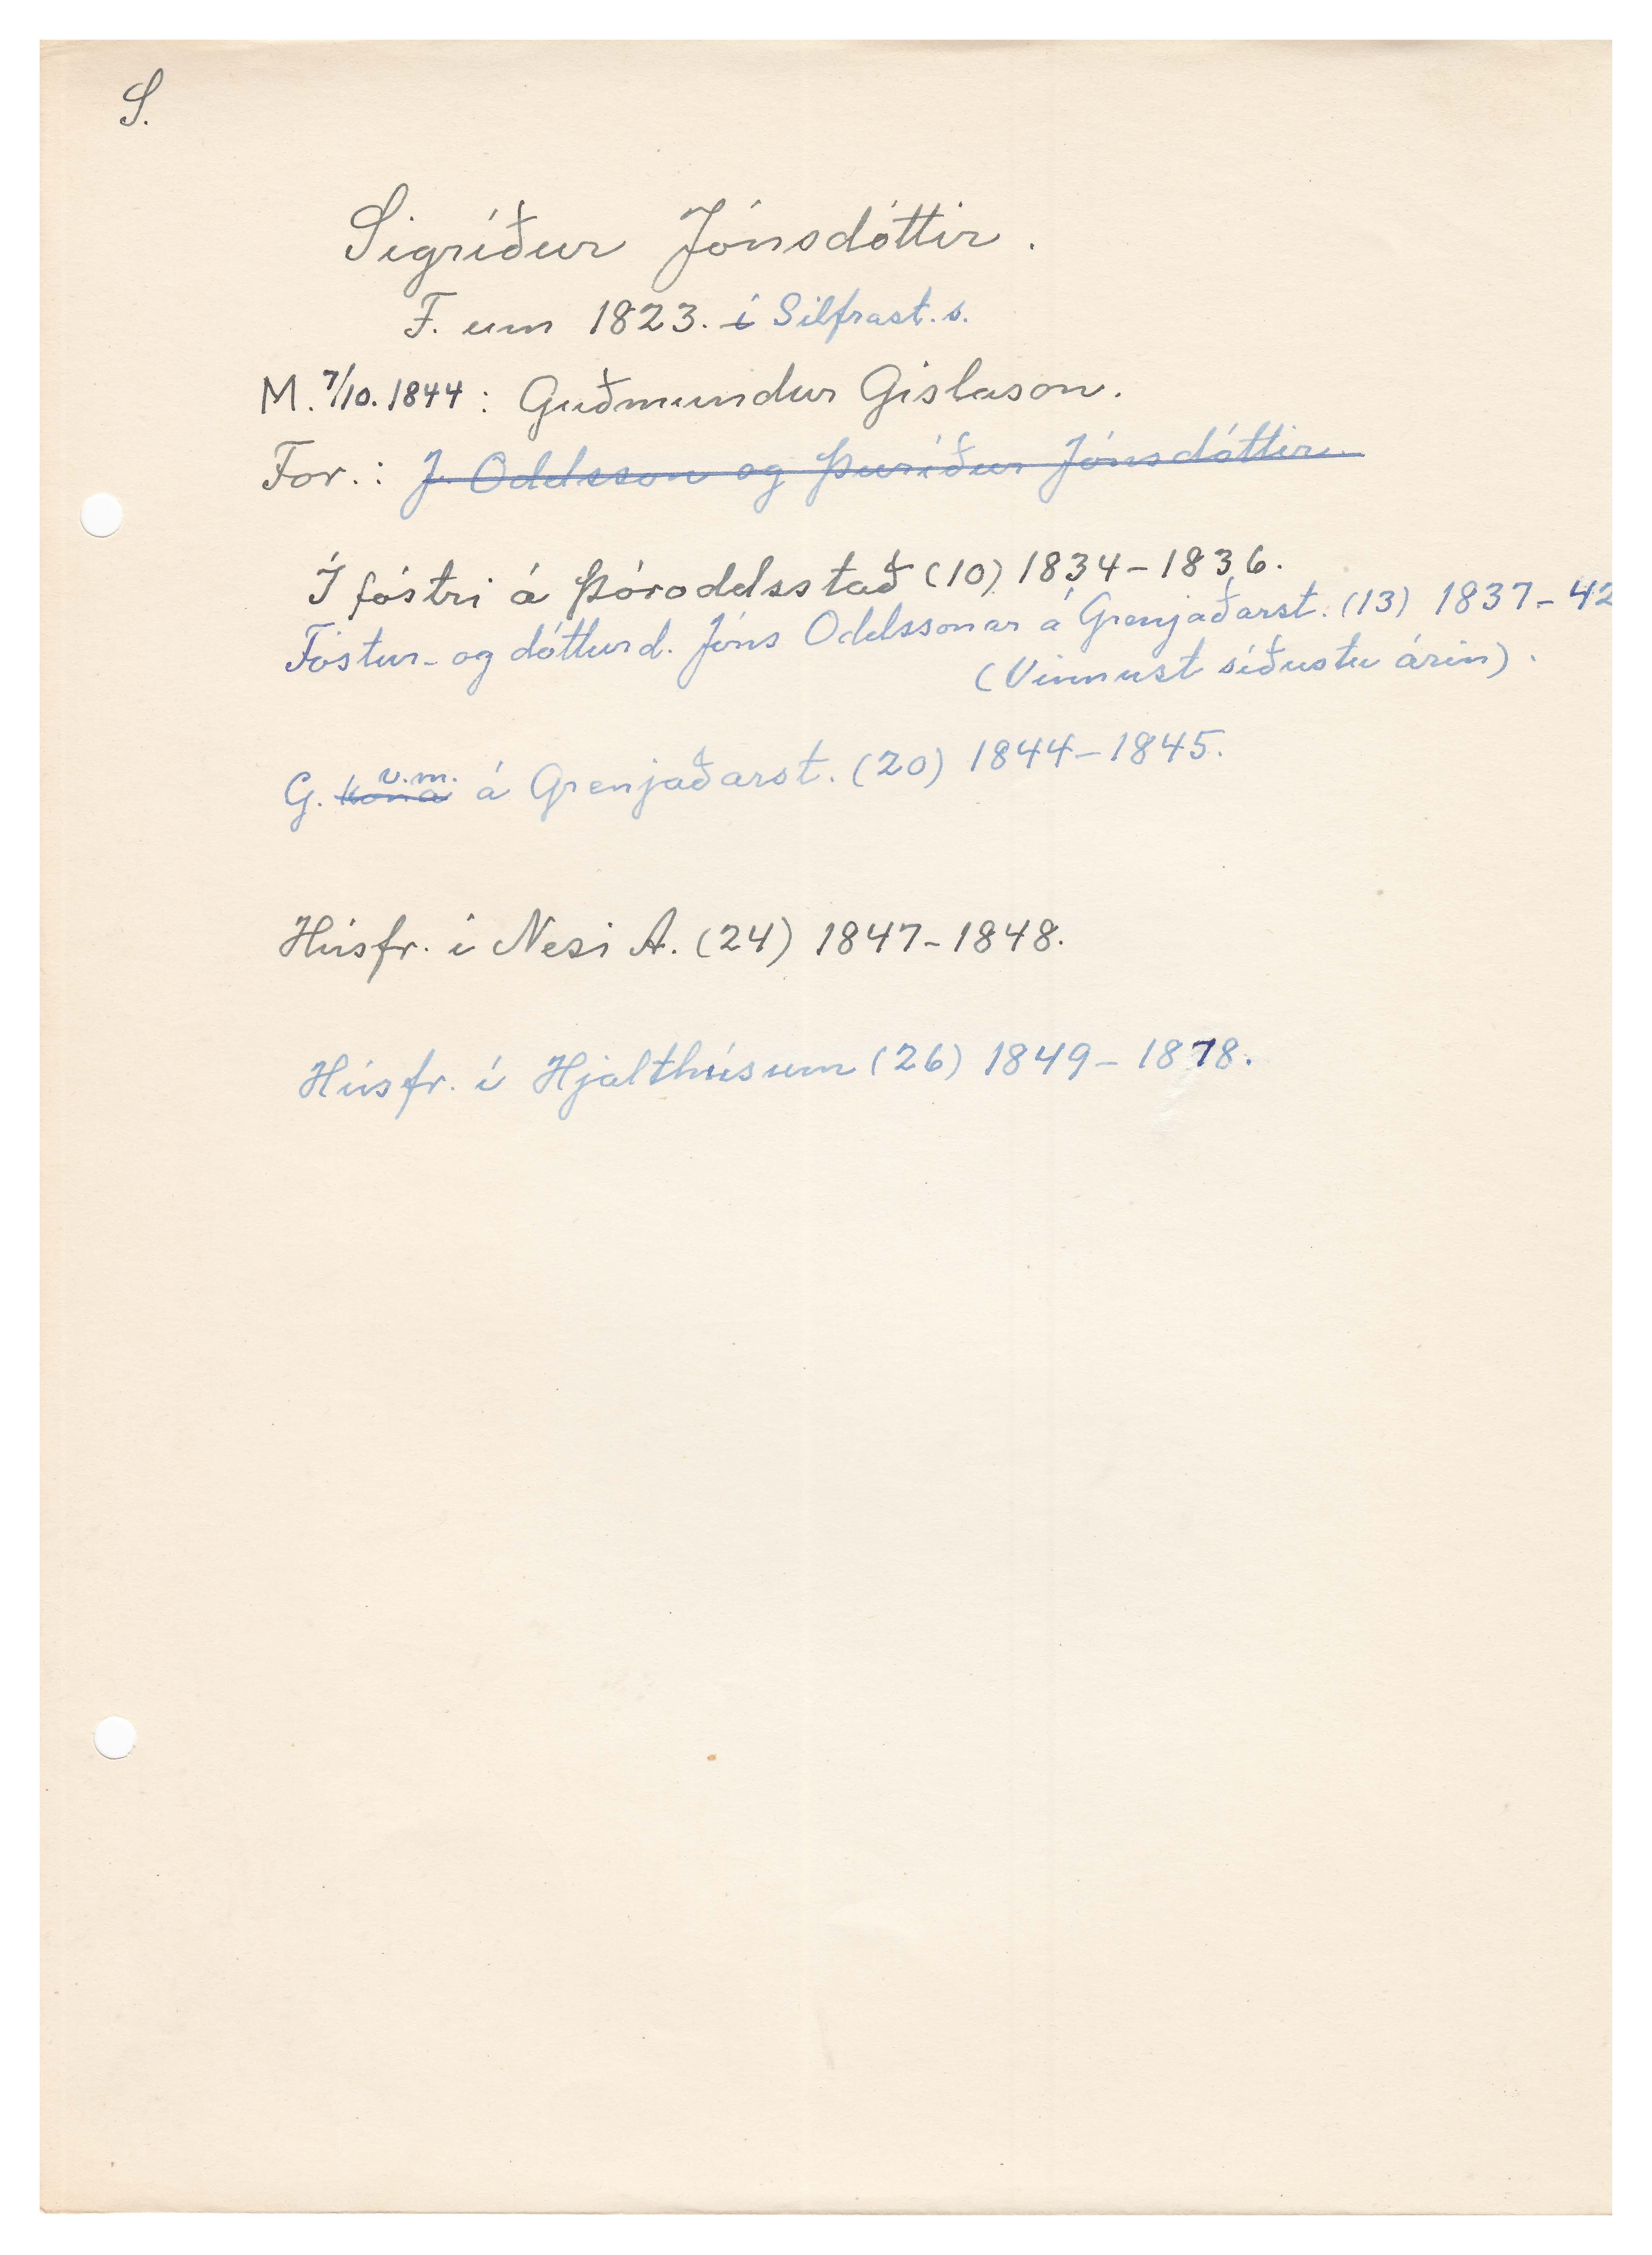 S.
Sigríður Jónsdóttir.
F. um 1823. í Silfrast.s.
M. 7/10. 1844: Guðmundur Gíslason.
For.: J. Oddsson og Þuríður Jónsdóttir.
Í fóstri á Þóroddsstað (10) 1834-1836.
Fóstur- og dótturd. Jóns Oddssonar á Grenjaðarst. (13) 1837-42
(Vinnust síðustu árin).
G. kona v.m. á Grenjaðarst. (20) 1844-1845.
Húsfr. í Nesi A. (24) 1847-1848.
Húsfr. í Hjalthúsum (26) 1849-1878.